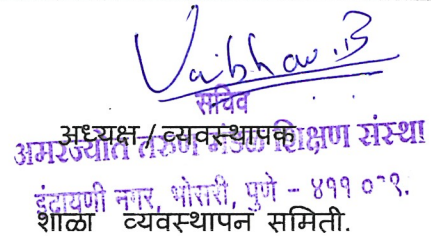 Vaibhav.B
सचिव
अध्यक्ष / व्यवस्थापक
अमरज्योत तरुण मंडळ शिक्षण संस्था
इंद्रायणी नगर, भोसरी, पुणे - ४११ ०२९.
शाळा व्यवस्थापन समिती.